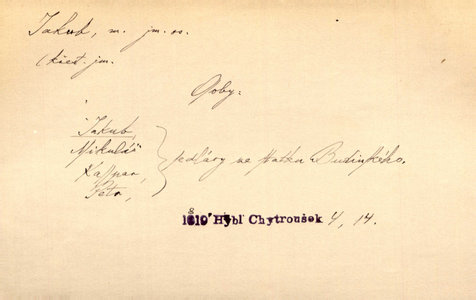 Jakub, m. jm. os.
(křest. jm.
Osoby:
Jakub,
Mikuláš
Kašpar,
Petr,
sedláry ve statku Budínského.
1819 Hýbl Chytroušek 4, 14.